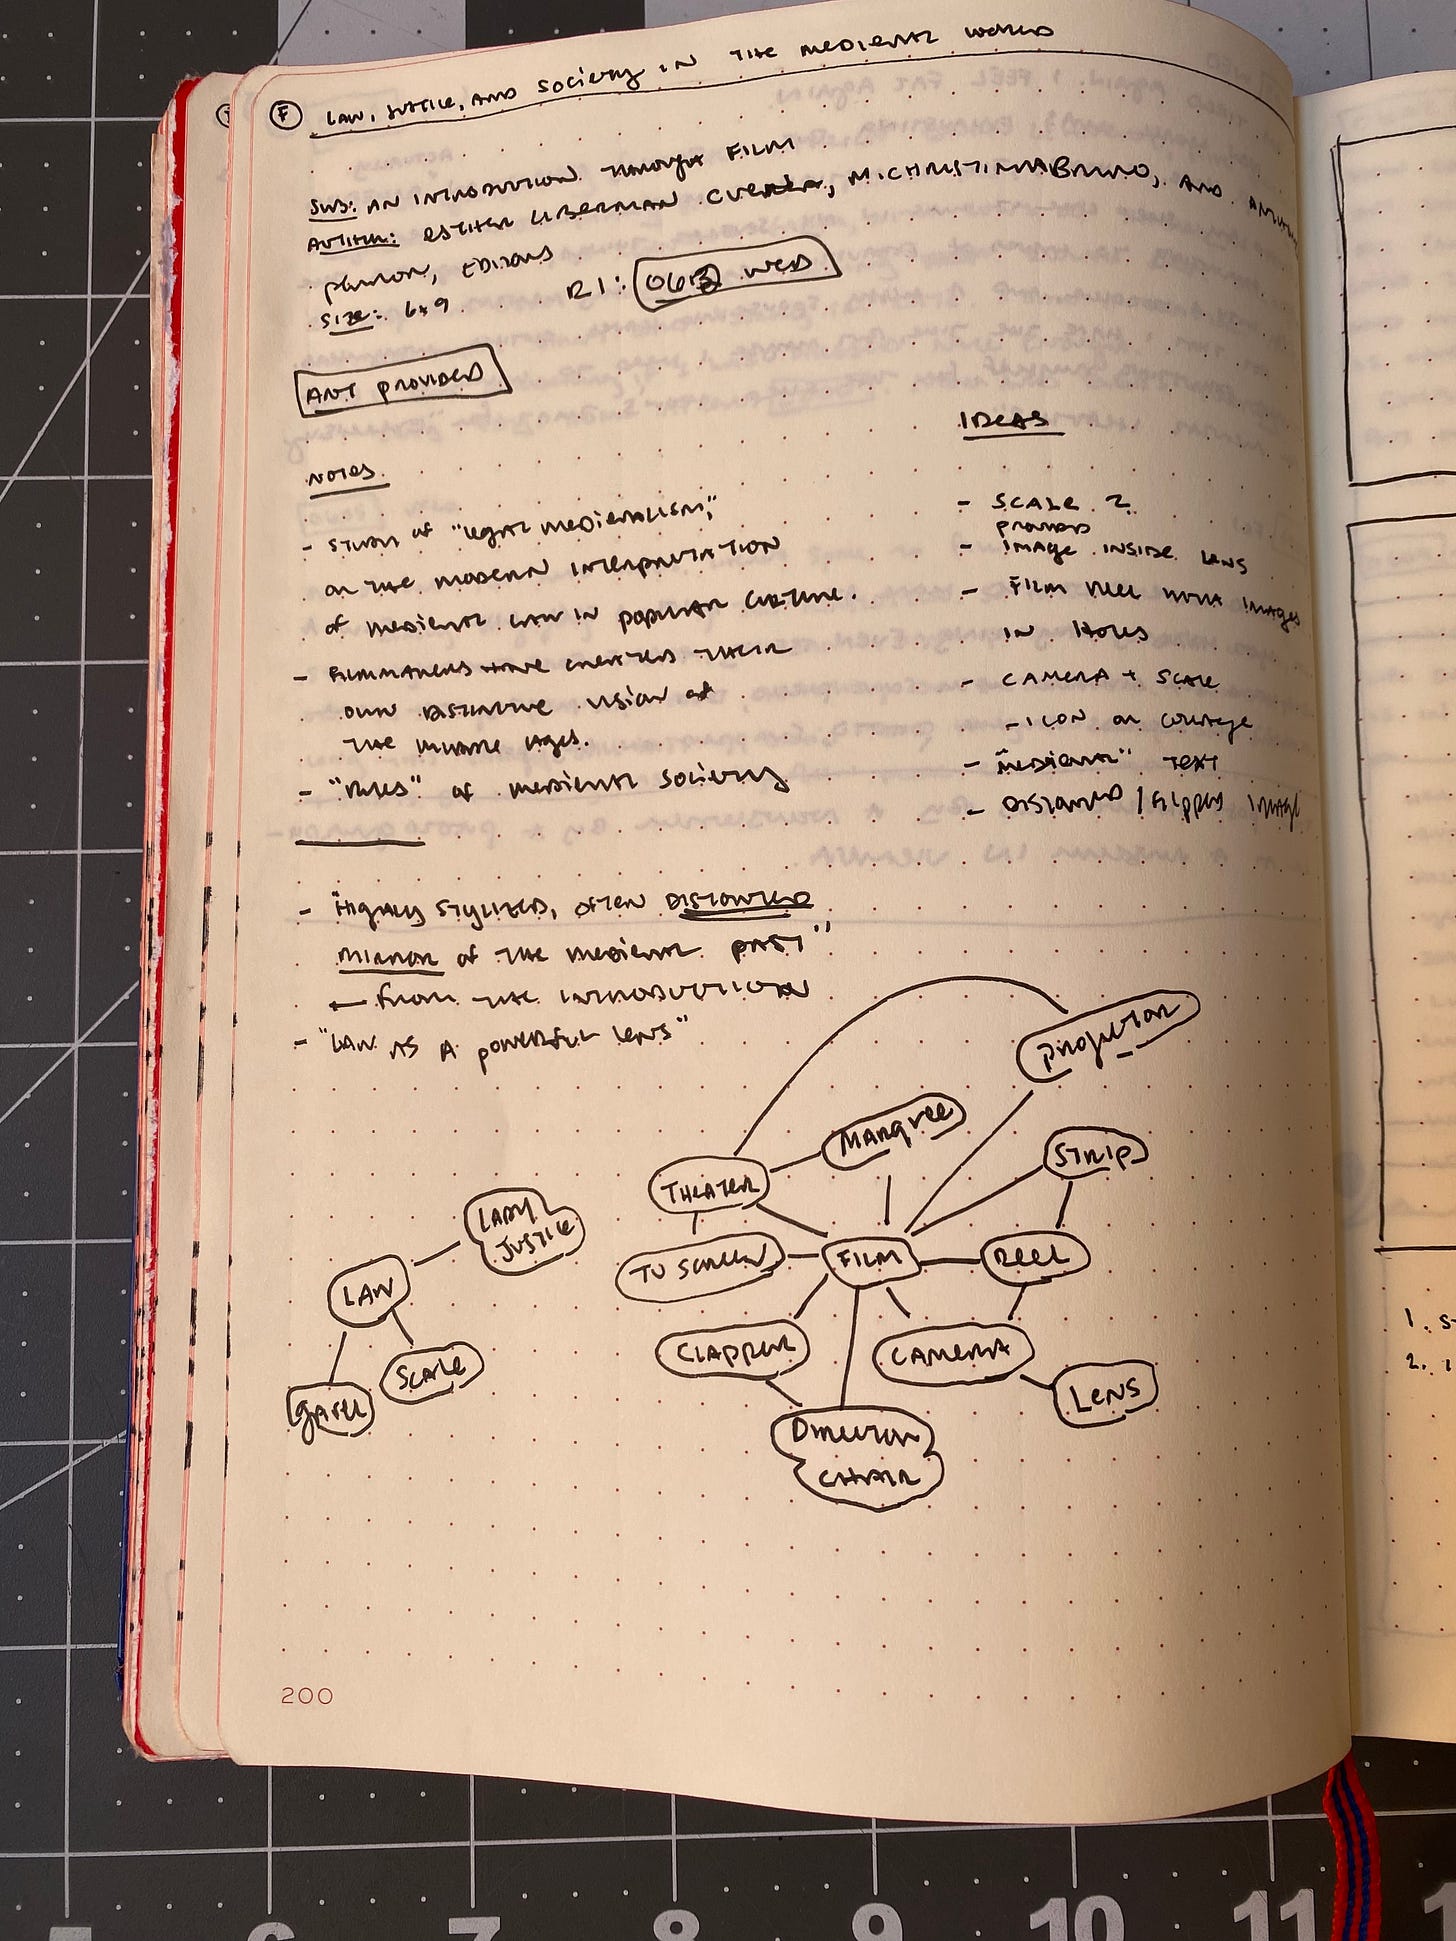 F LAW, JUSTICE, AND SOCIETY IN THE MEDIEVAL WORLD
SUB: AN INTRODUCTION THROUGH FILM
AUTHOR: ESTHER LIBERMAN CUENCA, M CHRISTINA BRUNO, AND
PERRON, EDITORS
SIZE: 6x9
R1: WED
ART PROVIDED
NOTES
- STUDY OF "LEGAL MEDIEVALISM,"
OR THE MODERN INTERPRETATION
OF MEDIEVAL LAW IN POPULAR CULTURE.
- FILMMAKERS HAVE CREATED THEIR
OWN DISTINCTIVE VISION OF
THE MIDDLE AGES.
- "RULES" OF MEDIEVAL SOCIETY
- "HIGHLY STYLIZED, OFTEN DISTORTED
MIRROR OF THE MEDIEVAL PAST"
← FROM THE INTRODUCTION
- "LAW AS A POWERFUL LENS"
IDEAS
- SCALE 2
- IMAGE INSIDE LENS
- FILM REEL WITH IMAGES
IN HOLES
- CAMERA + SCALE
- ICON OR COLLAGE
- "MEDIEVAL" TEXT
- DISTORTED / FLIPPED IMAGE
PROJECTOR
MARQUEE
STRIP
THEATER
LADY
JUSTICE
TV SCREEN
FILM
REEL
LAW
CLAPPER
CAMERA
SCALE
LENS
GAVEL
DIRECTOR
CHAIR
200
1. S
2.
6 7 8 9 10 11 1